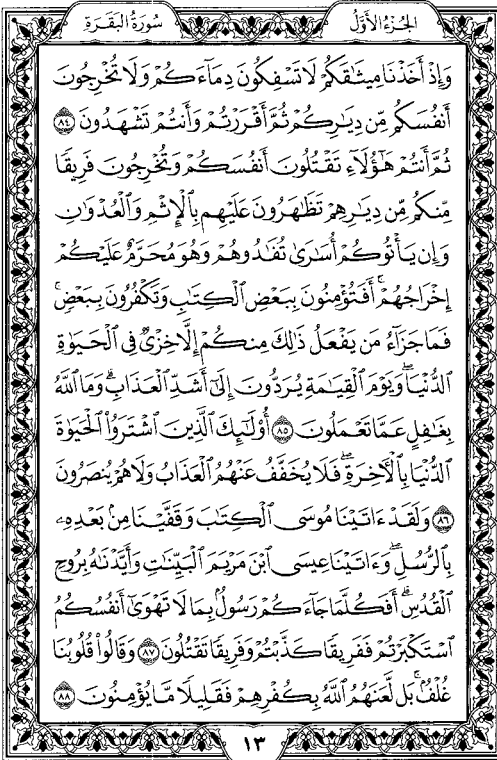 الجزء الأول
سورة البقرة
وَإِذْ أَخَذْنَا مِيثَٰقَكُمْ لَا تَسْفِكُونَ دِمَآءَكُمْ وَلَا تُخْرِجُونَ
أَنفُسَكُم مِّن دِيَٰرِكُمْ ثُمَّ أَقْرَرْتُمْ وَأَنتُمْ تَشْهَدُونَ ٨٤
ثُمَّ أَنتُمْ هَٰٓؤُلَآءِ تَقْتُلُونَ أَنفُسَكُمْ وَتُخْرِجُونَ فَرِيقًا
مِّنكُم مِّن دِيَٰرِهِمْ تَظَٰهَرُونَ عَلَيْهِم بِٱلْإِثْمِ وَٱلْعُدْوَٰنِ
وَإِن يَأْتُوكُمْ أُسَٰرَىٰ تُفَٰدُوهُمْ وَهُوَ مُحَرَّمٌ عَلَيْكُمْ
إِخْرَاجُهُمْ ۚ أَفَتُؤْمِنُونَ بِبَعْضِ ٱلْكِتَٰبِ وَتَكْفُرُونَ بِبَعْضٍ ۚ
فَمَا جَزَآءُ مَن يَفْعَلُ ذَٰلِكَ مِنكُمْ إِلَّا خِزْىٌ فِى ٱلْحَيَوٰةِ
ٱلدُّنْيَا ۖ وَيَوْمَ ٱلْقِيَٰمَةِ يُرَدُّونَ إِلَىٰٓ أَشَدِّ ٱلْعَذَابِ ۗ وَمَا ٱللَّهُ
بِغَٰفِلٍ عَمَّا تَعْمَلُونَ ٨٥ أُو۟لَٰٓئِكَ ٱلَّذِينَ ٱشْتَرَوُا۟ ٱلْحَيَوٰةَ
ٱلدُّنْيَا بِٱلْءَاخِرَةِ ۖ فَلَا يُخَفَّفُ عَنْهُمُ ٱلْعَذَابُ وَلَا هُمْ يُنصَرُونَ
٨٦ وَلَقَدْ ءَاتَيْنَا مُوسَى ٱلْكِتَٰبَ وَقَفَّيْنَا مِنۢ بَعْدِهِۦ
بِٱلرُّسُلِ ۖ وَءَاتَيْنَا عِيسَى ٱبْنَ مَرْيَمَ ٱلْبَيِّنَٰتِ وَأَيَّدْنَٰهُ بِرُوحِ
ٱلْقُدُسِ ۗ أَفَكُلَّمَا جَآءَكُمْ رَسُولٌۢ بِمَا لَا تَهْوَىٰٓ أَنفُسُكُمُ
ٱسْتَكْبَرْتُمْ فَفَرِيقًا كَذَّبْتُمْ وَفَرِيقًا تَقْتُلُونَ ٨٧ وَقَالُوا۟ قُلُوبُنَا
غُلْفٌۢ ۚ بَل لَّعَنَهُمُ ٱللَّهُ بِكُفْرِهِمْ فَقَلِيلًا مَّا يُؤْمِنُونَ ٨٨
١٣